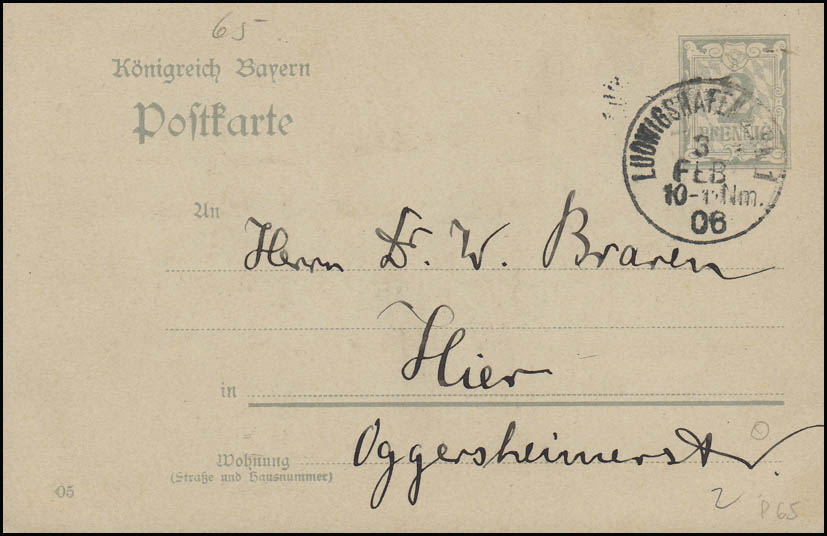 65
Königreich Bayern
Postkarte
2
PFENNIG
LUDWIGSHAFEN
3
FEB
10-11 Nm.
06
An
Herrn Dr. W. Braren
Hier
in
Oggersheimerstr
Wohnung
(Straße und Hausnummer)
05
2
P65